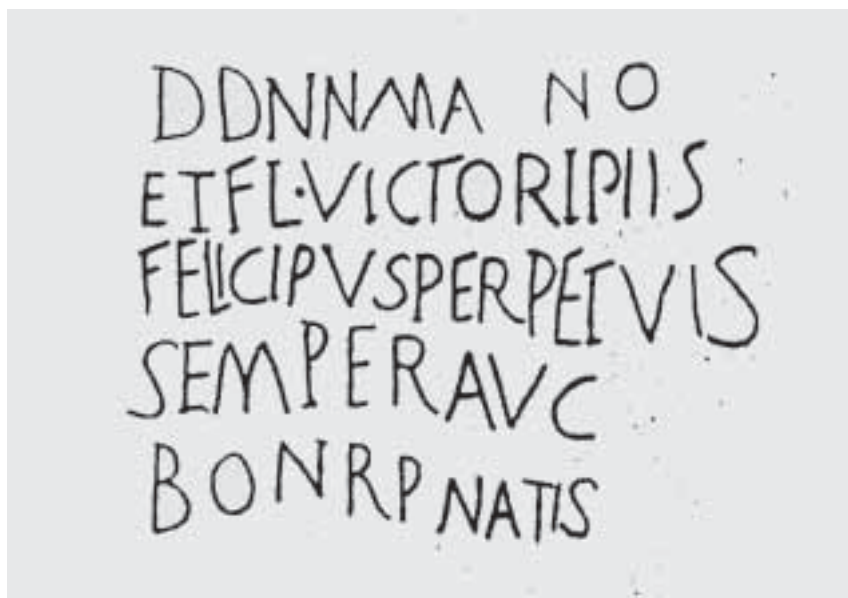 DDNNMA NO
ETFL·VICTORIPIIS
FELICIPVSPERPETVIS
SEMPERAVC
BONRPNATIS